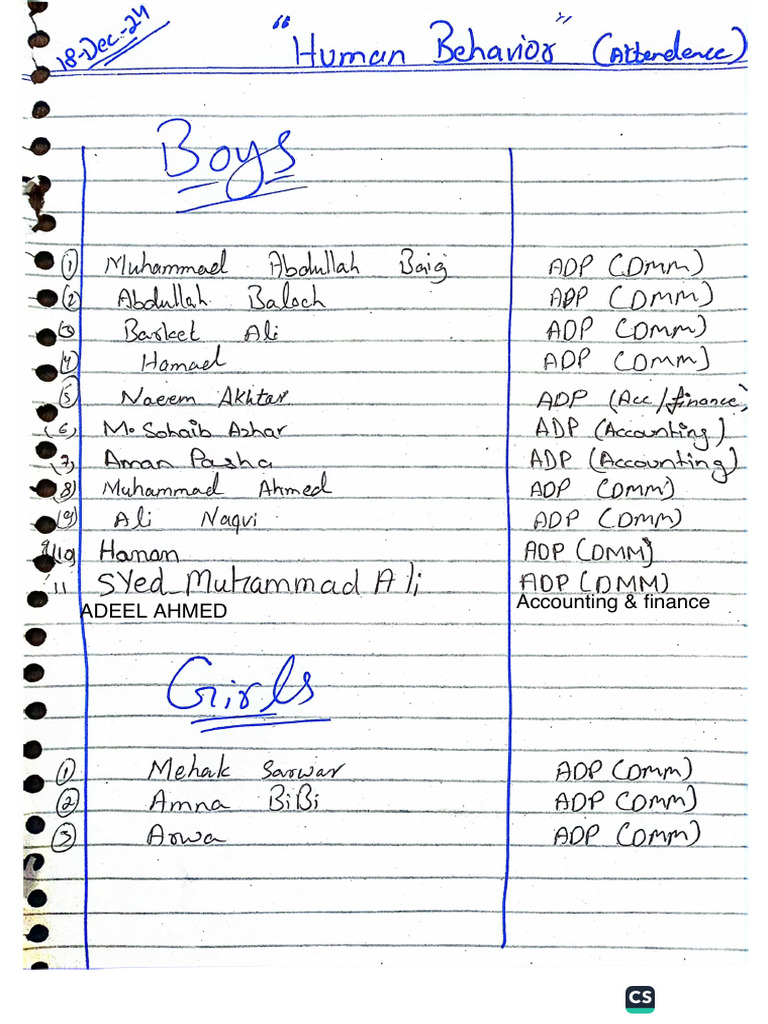 18-Dec-24 "Human Behavior" (Attendence)
Boys
1 Muhammad Abdullah Baig ADP (DMM)
2 Abdullah Baloch ADP (DMM)
3 Barket Ali ADP (DMM)
4 Hamad ADP (DMM)
5 Naeem Akhtar ADP (Acc/finance)
(6) M. Sohaib Azhar ADP (Accounting)
(7) Aman Pasha ADP (Accounting)
(8) Muhammad Ahmed ADP (DMM)
(9) Ali Naqvi ADP (DMM)
10 Hanan ADP (DMM)
11 Syed Muhammad Ali ADP (DMM)
ADEEL AHMED Accounting & finance
Girls
1 Mehak Sarwar ADP (DMM)
2 Amna BiBi ADP (DMM)
3 Arwa ADP (DMM)
CS